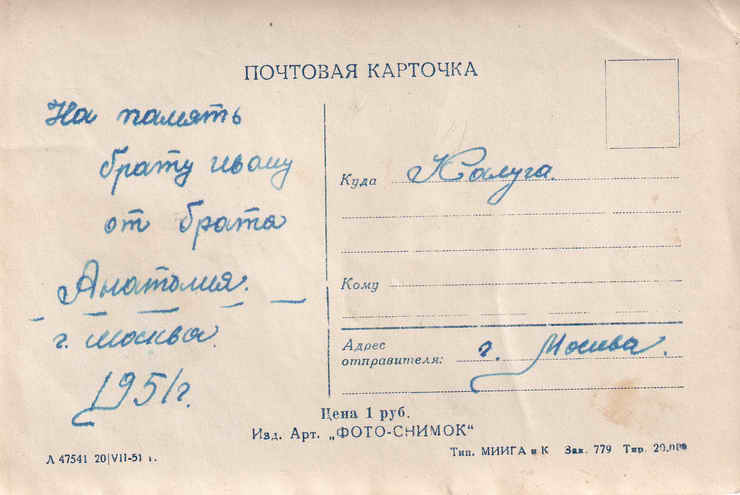 ПОЧТОВАЯ КАРТОЧКА
На память
брату ивану
от брата
Анатолия.
г. Москва.
1951г.
Куда Калуга.
Кому
Адрес
отправителя: г. Москва.
Цена 1 руб.
Изд. Арт. „ФОТО-СНИМОК"
Л 47541 20|VII-51 г.
Тип. МИИГА и К Зак. 779 Тир. 20.000